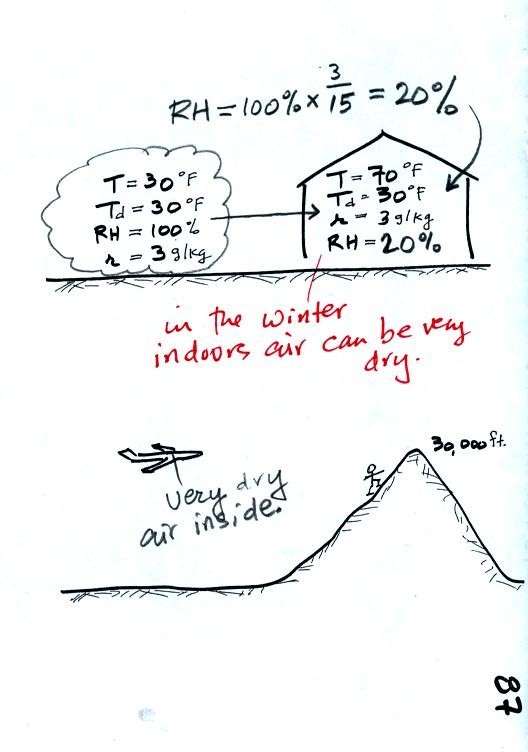 RH = 100% × 3/15 = 20%
T = 30 °F
Td = 30 °F
RH = 100%
r = 3 g/kg
T = 70 °F
Td = 30 °F
r = 3 g/kg
RH = 20%
in the winter
indoors air can be very
dry.
30,000 ft.
very dry
air inside.
87